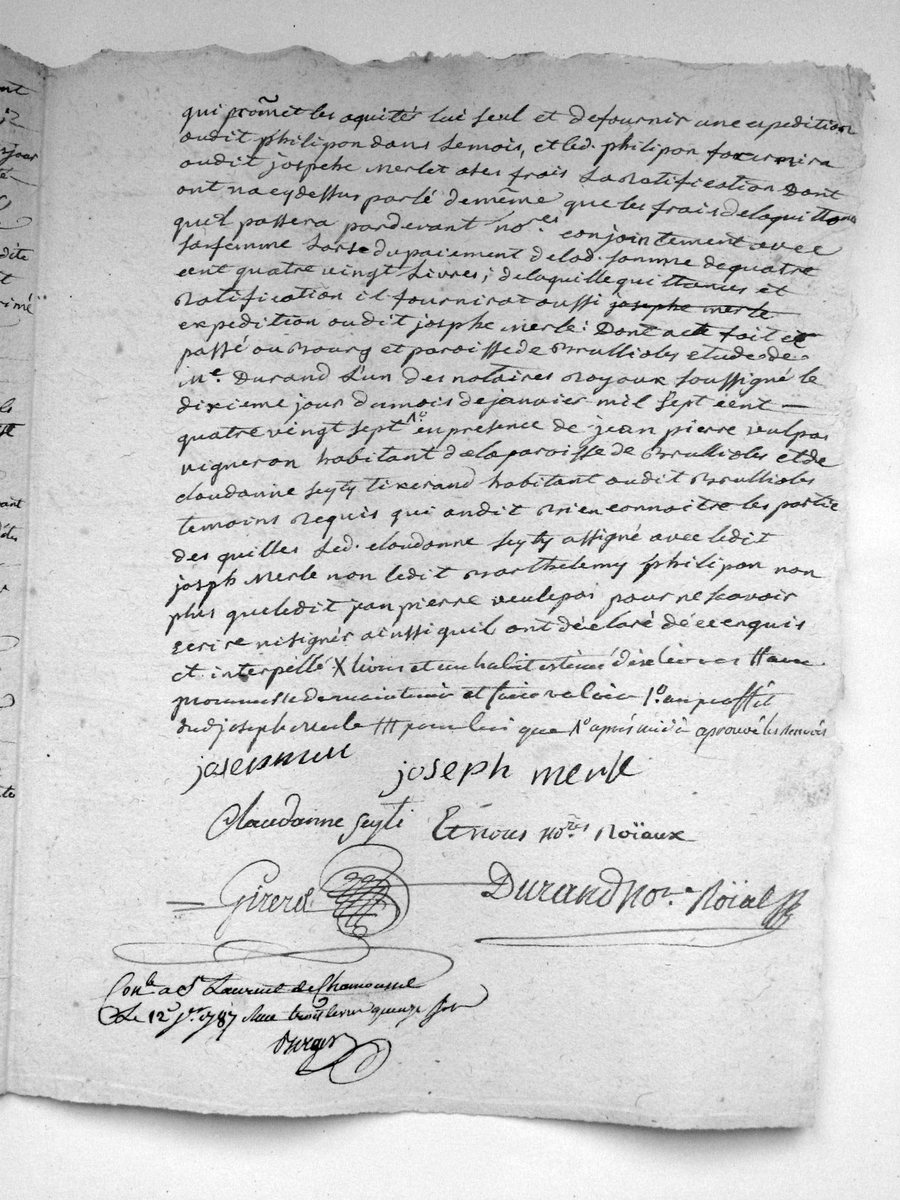 qui promet les aquité lui seul et defournir une expedition
audit philipon dans le mois, et led. philipon fournira
audit josephe Merle et ases frais la ratification Dont
ont na cydessus parlé de même que les frais de la quittance
qu'il passera pardevant no.res conjointement avec
sa femme lors du paiement de lad. somme de quatre
cent quatre vingt livres; de laquelle quittances et
ratification il fournirat aussi josephe merle
expedition audit josphe Merle: Dont acte fait et
passé au Bourg et paroisse de Brullioles etude de
M.e Durand L'un des notaires Royaux soussigné le
dixieme jour du mois de janvier mil sept cent —
quatre vingt sept 1.o en presence de jean pierre veulpas
vigneron habitant de la paroisse de Brullioles et de
claudanne Seyty tixerand habitant audit Brullioles
temoins Requis qui ondit Bien connoitre les partie
des quilles led. claudanne Seyty assigné avec ledit
joseph Merle non ledit Barthelemy philipon non
plus que ledit jean pierre veulepas pour ne scavoir
Ecrire ni signer ainsi quil ont déclaré de ce enquis
et interpellé X livres et un habit estimé dix livres // avec
promesse de maintenir et faire valoir 1.o au proffit
dud joseph merle /// pour lui que 1.o après midi aprouvé les renvois
joseph merle
Claudanne Seyti Et nous no.res Roïaux
Girerd Durand No.re Roïal
Con.lé a S.t Laurent de Chamousset
Le 12 j.er 1787 Recu trois livres quinze sols